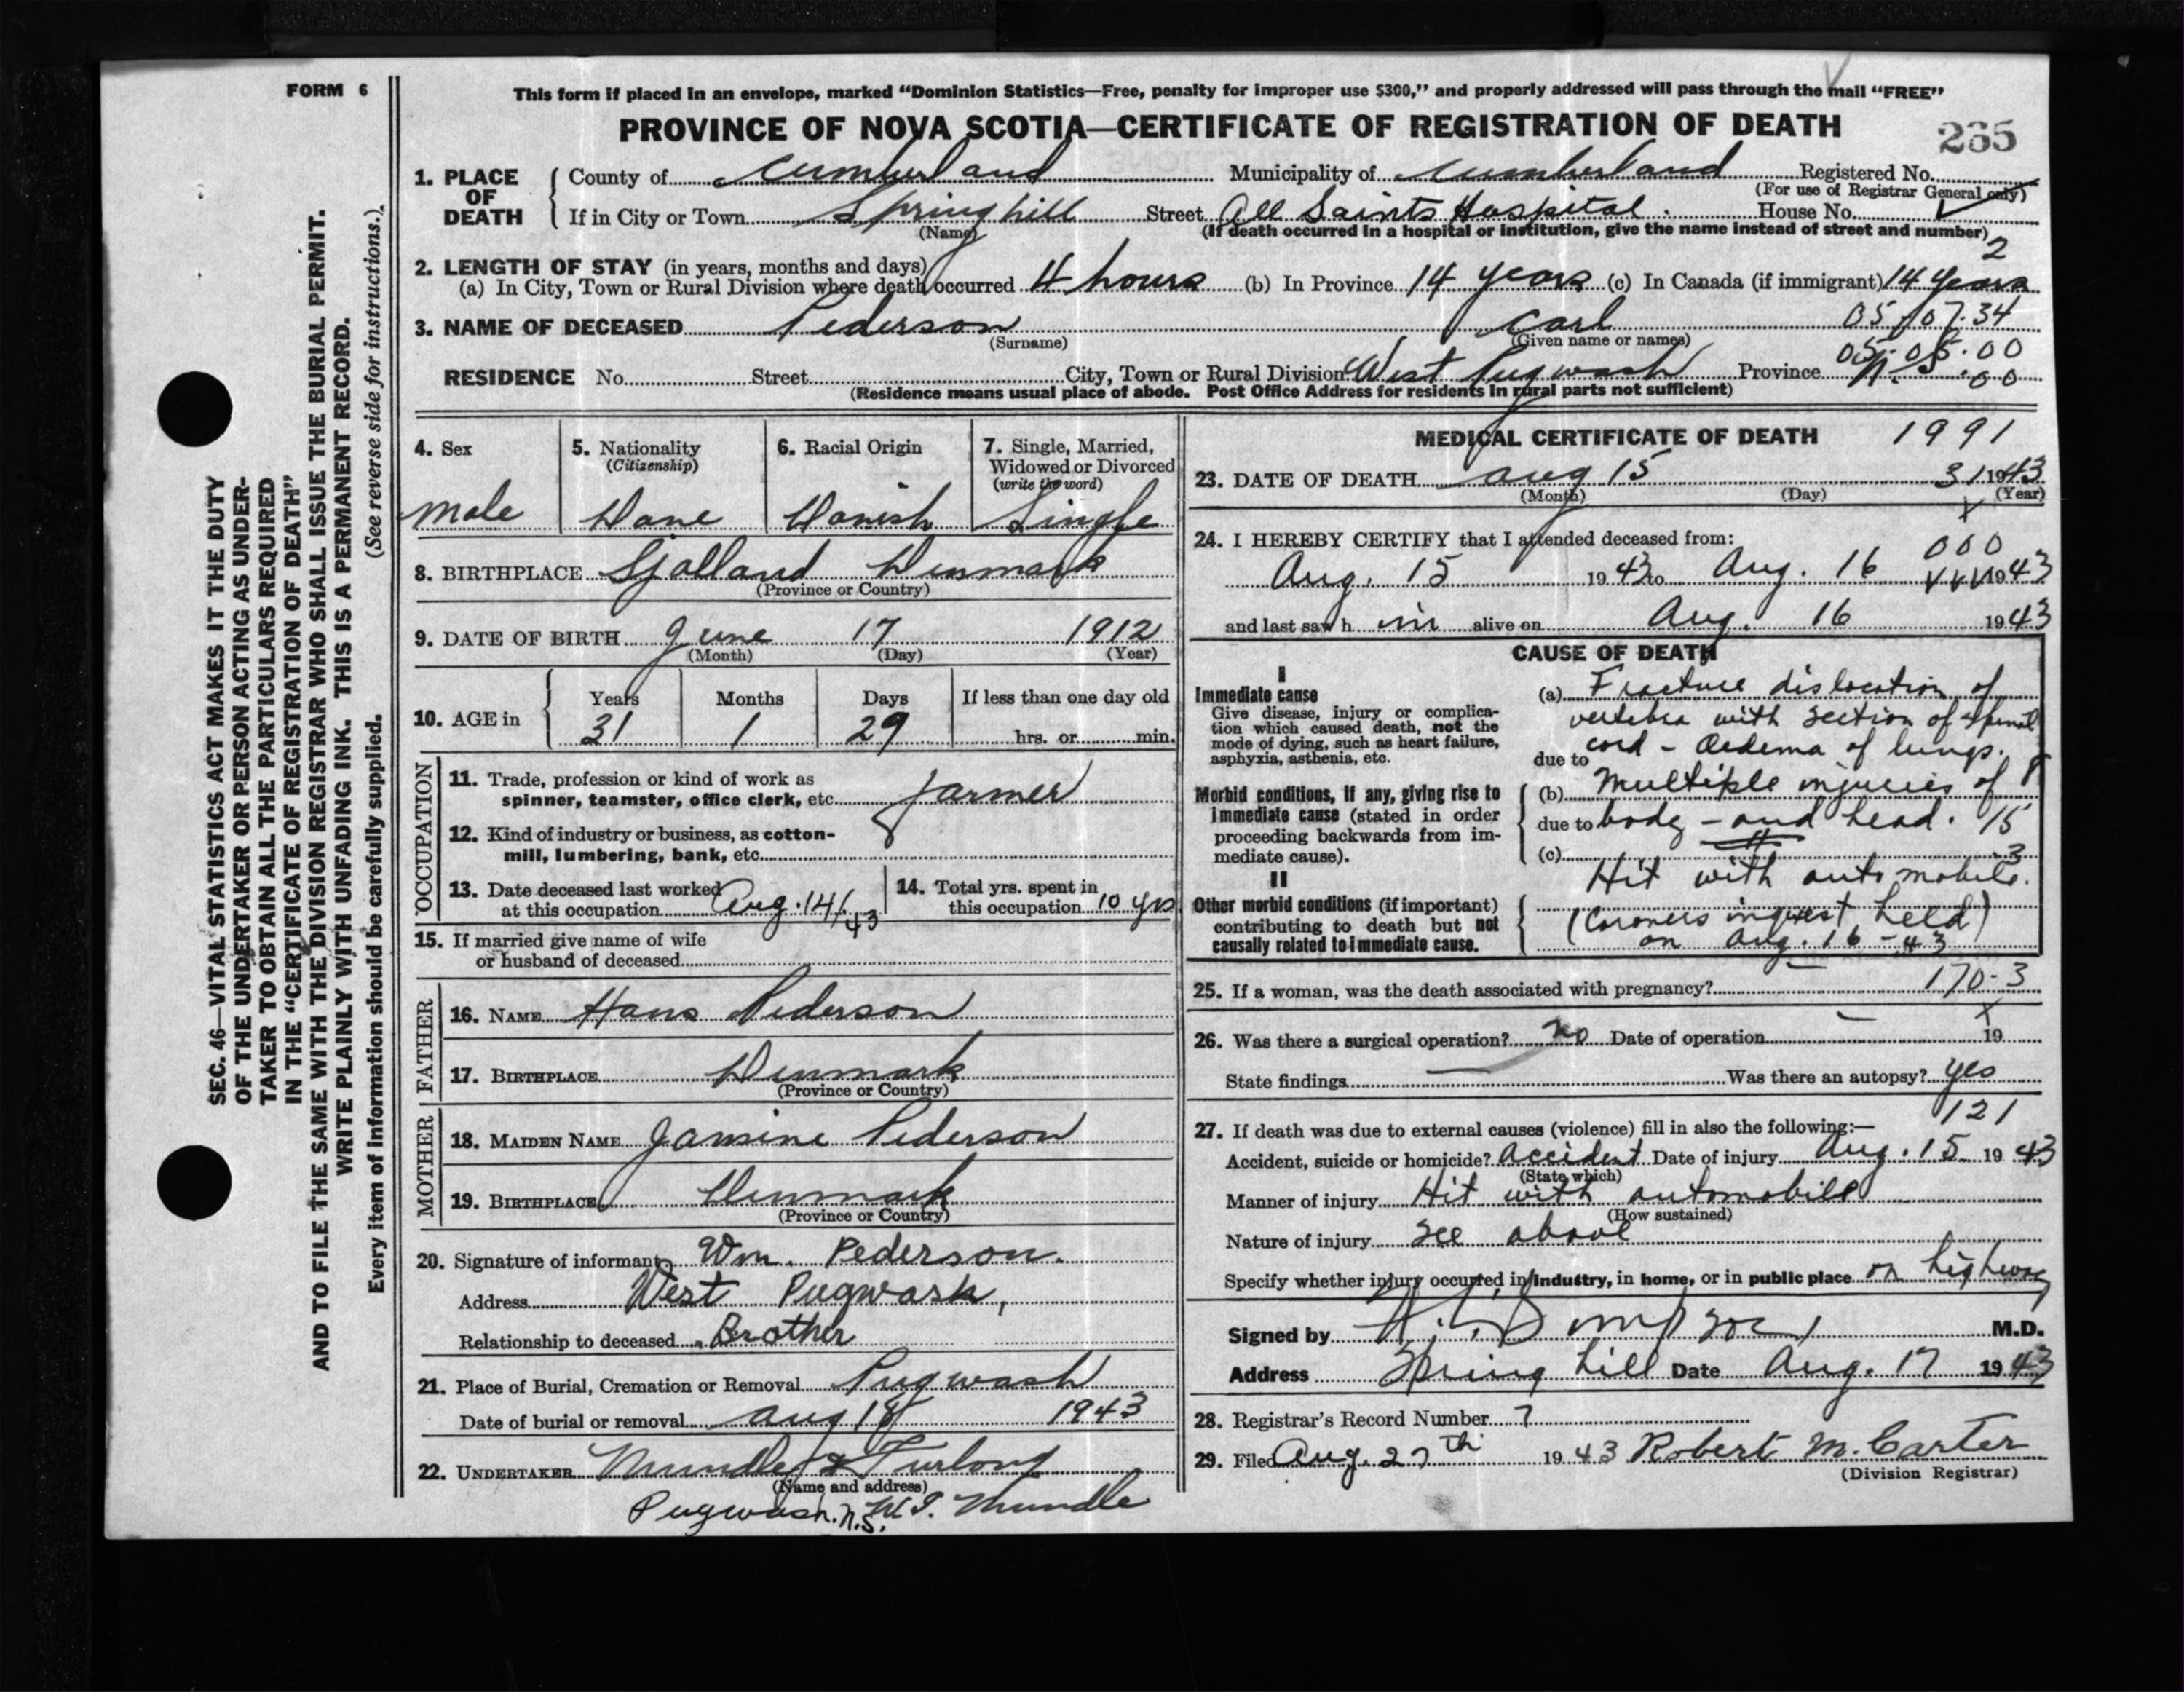 FORM 6
This form if placed in an envelope, marked “Dominion Statistics—Free, penalty for improper use $300,” and properly addressed will pass through the mail “FREE”
PROVINCE OF NOVA SCOTIA—CERTIFICATE OF REGISTRATION OF DEATH
265
1. PLACE OF DEATH { County of Cumberland Municipality of Cumberland Registered No.
(For use of Registrar General only)
If in City or Town Springhill Street All Saints Hospital. House No.
(Name) (If death occurred in a hospital or institution, give the name instead of street and number)
2
2. LENGTH OF STAY (in years, months and days)
(a) In City, Town or Rural Division where death occurred 4 hours (b) In Province 14 years (c) In Canada (if immigrant) 14 years
05-07.34
3. NAME OF DECEASED Pederson Carl
(Surname) (Given name or names)
05-05.00
RESIDENCE No. Street City, Town or Rural Division West Pugwash Province N.S. 00
(Residence means usual place of abode. Post Office Address for residents in rural parts not sufficient)
4. Sex
Male
5. Nationality
(Citizenship)
Dane
6. Racial Origin
Danish
7. Single, Married,
Widowed or Divorced
(write the word)
Single
8. BIRTHPLACE Sjolland Denmark
(Province or Country)
9. DATE OF BIRTH June 17 1912
(Month) (Day) (Year)
10. AGE in { Years Months Days If less than one day old
31 1 29 hrs. or min.
OCCUPATION
11. Trade, profession or kind of work as
spinner, teamster, office clerk, etc. farmer
12. Kind of industry or business, as cotton-
mill, lumbering, bank, etc.
13. Date deceased last worked
at this occupation Aug. 14/43
14. Total yrs. spent in
this occupation 10 yrs
15. If married give name of wife
or husband of deceased
FATHER
16. NAME Hans Pederson
17. BIRTHPLACE Denmark
(Province or Country)
MOTHER
18. MAIDEN NAME Jamsine Pederson
19. BIRTHPLACE Denmark
(Province or Country)
20. Signature of informant Wm. Pederson.
Address West Pugwash,
Relationship to deceased Brother
21. Place of Burial, Cremation or Removal Pugwash
Date of burial or removal Aug 18 1943
22. UNDERTAKER Mundle & Furlong
(Name and address)
Pugwash. N.S. W. I. Mundle
MEDICAL CERTIFICATE OF DEATH 1991
23. DATE OF DEATH Aug 15 31 1943
(Month) (Day) (Year)
x
24. I HEREBY CERTIFY that I attended deceased from:
000
Aug. 15 1943 to Aug. 16 1943
and last saw h im alive on Aug. 16 1943
CAUSE OF DEATH
I
Immediate cause
Give disease, injury or complica-
tion which caused death, not the
mode of dying, such as heart failure,
asphyxia, asthenia, etc.
(a) Fracture dislocation of
vertebra with section of spinal
cord - Oedema of lungs.
due to
Morbid conditions, if any, giving rise to
immediate cause (stated in order
proceeding backwards from im-
mediate cause).
(b) Multiple injuries of
due to body - and head. 15
(c) 3
Hit with automobile.
II
Other morbid conditions (if important)
contributing to death but not
causally related to immediate cause.
(Coroners inquest held)
on Aug. 16-43
25. If a woman, was the death associated with pregnancy? — 170-3
x
26. Was there a surgical operation? no Date of operation — 19
State findings — Was there an autopsy? yes
121
27. If death was due to external causes (violence) fill in also the following:—
Accident, suicide or homicide? Accident Date of injury Aug. 15 1943
(State which)
Manner of injury Hit with automobile
(How sustained)
Nature of injury See above
Specify whether injury occurred in industry, in home, or in public place on highway
Signed by M.D.
Address Spring hill Date Aug. 17 1943
28. Registrar's Record Number 7
29. Filed Aug. 27th 1943 Robert M. Carter
(Division Registrar)
SEC. 46—VITAL STATISTICS ACT MAKES IT THE DUTY
OF THE UNDERTAKER OR PERSON ACTING AS UNDER-
TAKER TO OBTAIN ALL THE PARTICULARS REQUIRED
IN THE “CERTIFICATE OF REGISTRATION OF DEATH”
AND TO FILE THE SAME WITH THE DIVISION REGISTRAR WHO SHALL ISSUE THE BURIAL PERMIT.
WRITE PLAINLY WITH UNFADING INK. THIS IS A PERMANENT RECORD.
Every item of information should be carefully supplied. (See reverse side for instructions.)